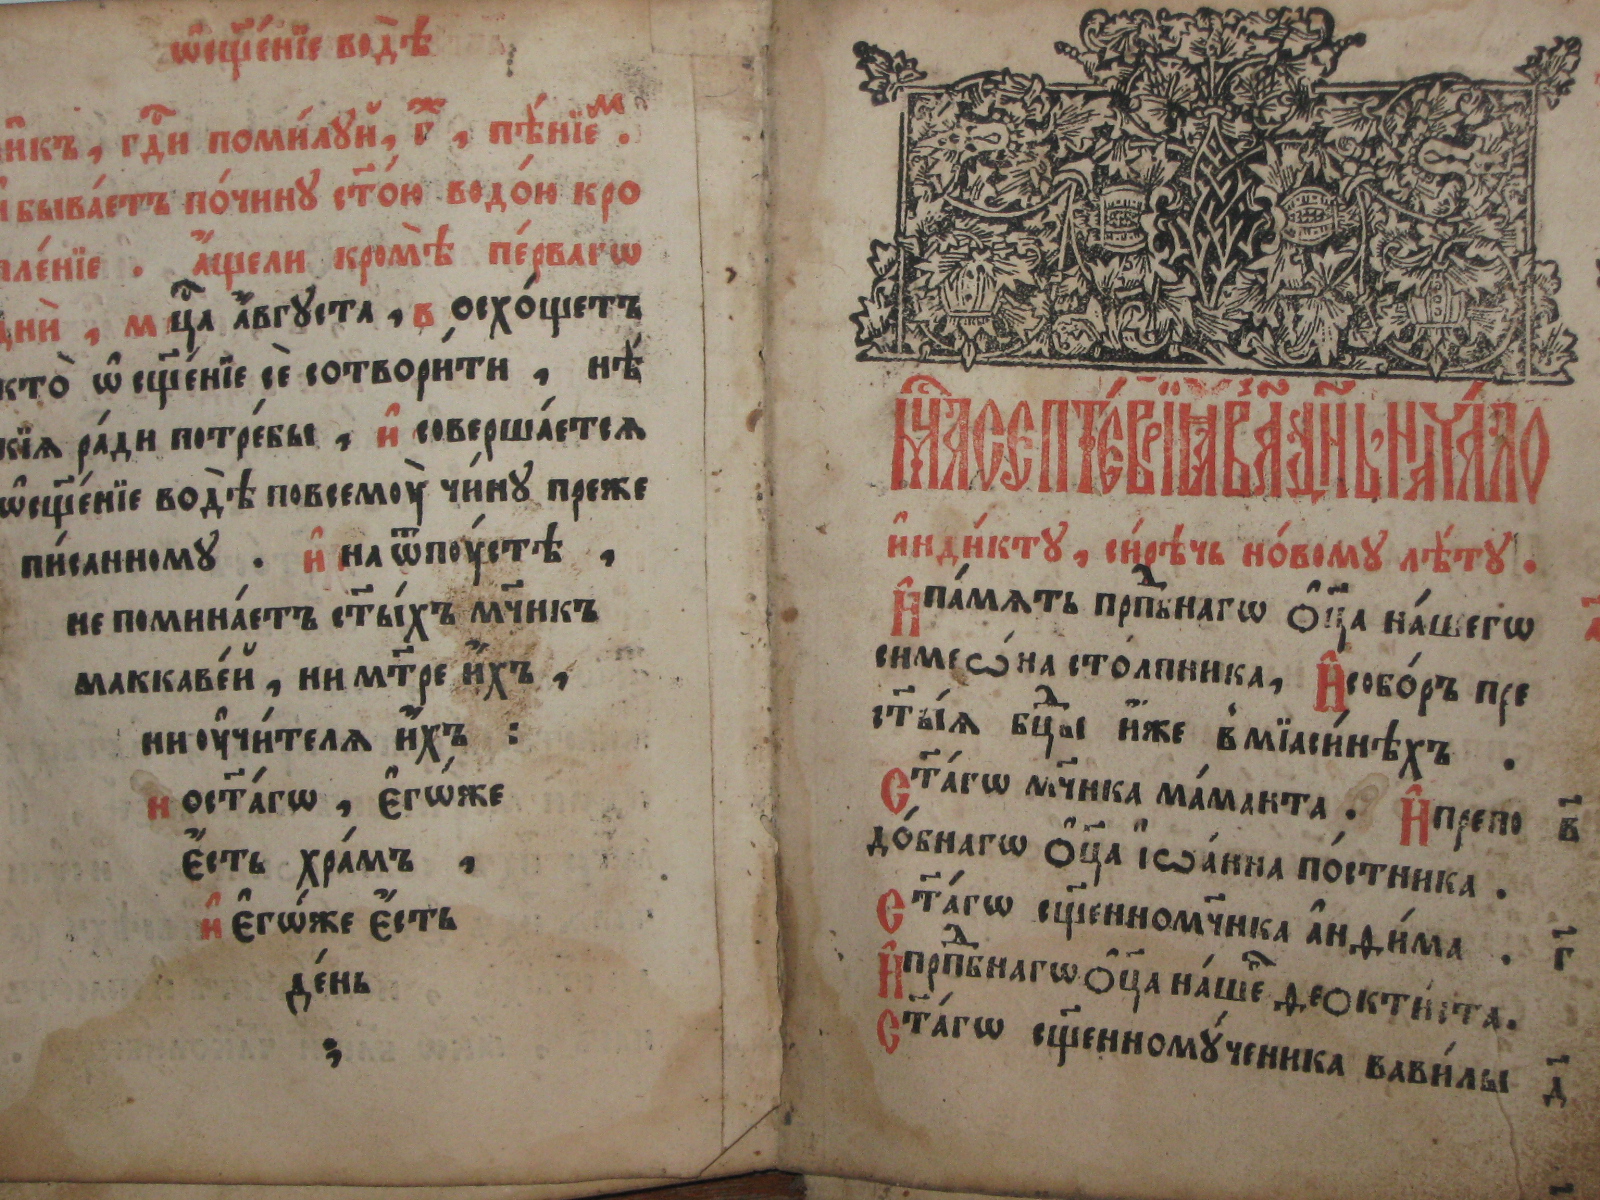 ѡ҆сщ҃е́нїе водѣ̀
гдⷭ҇и поми́лꙋй, г҃ⷤ, пѣ́нїеⷨ.
бывае́тъ по́чинꙋ ст҃о́ю водо́ю кро
пле́нїе. а҆́щели кромѣ̀ пе́рвагѡ
днѝ, мцⷭ҇а а҆́вгꙋста, восхо́щетъ
кто̀ ѡ҆сщ҃е́нїе сѐ сотвори́ти, нѣ́
кїѧ ра́ди потре́бы, и҆ соверша́етсѧ
ѡ҆сщ҃е́нїе водѣ̀ повсемоу̀ чи́нꙋ преже
пи́санномꙋ. и҆ на ѿпоу́стѣ,
не помина́етъ ст҃ы́хъ мч҃нкъ
маккаве́й, ни мт҃ре и҆́хъ,
ни оу҆чи́телѧ и҆́хъ :
и ост҃а́гѡ, є҆гѡ́же
є҆́сть хра́мъ,
и҆ є҆гѡ́же є҆́сть
де́нь
,
мцⷭ҇а септе́врїа в҃ а҃ дн҃ь нача́ло
и҆нди́ктꙋ, си́рѣчь но́вомꙋ лѣ́тꙋ.
И҆ па́мѧть прпⷣбнагѡ ѻ҆ц҃а на́шегѡ
симеѡ́на сто́лпника, И҆ собо́ръ пре
ст҃ы́ѧ бцⷣы и҆́же в мїаси́нѣхъ.
Ст҃а́гѡ мч҃нка ма́манта. И҆ препо
до́бнагѡ ѻ҆ц҃а і҆ѡа́нна по́стника.
в҃
Ст҃а́гѡ сщ҃енномч҃нка а҆нѳи́ма.
г҃
И҆ прпⷣбнагѡ ѻ҆ц҃а на́шеⷢ҇ ѳеокти́ста.
Ст҃а́гѡ сщ҃енномꙋ́ченика вави́лы
д҃